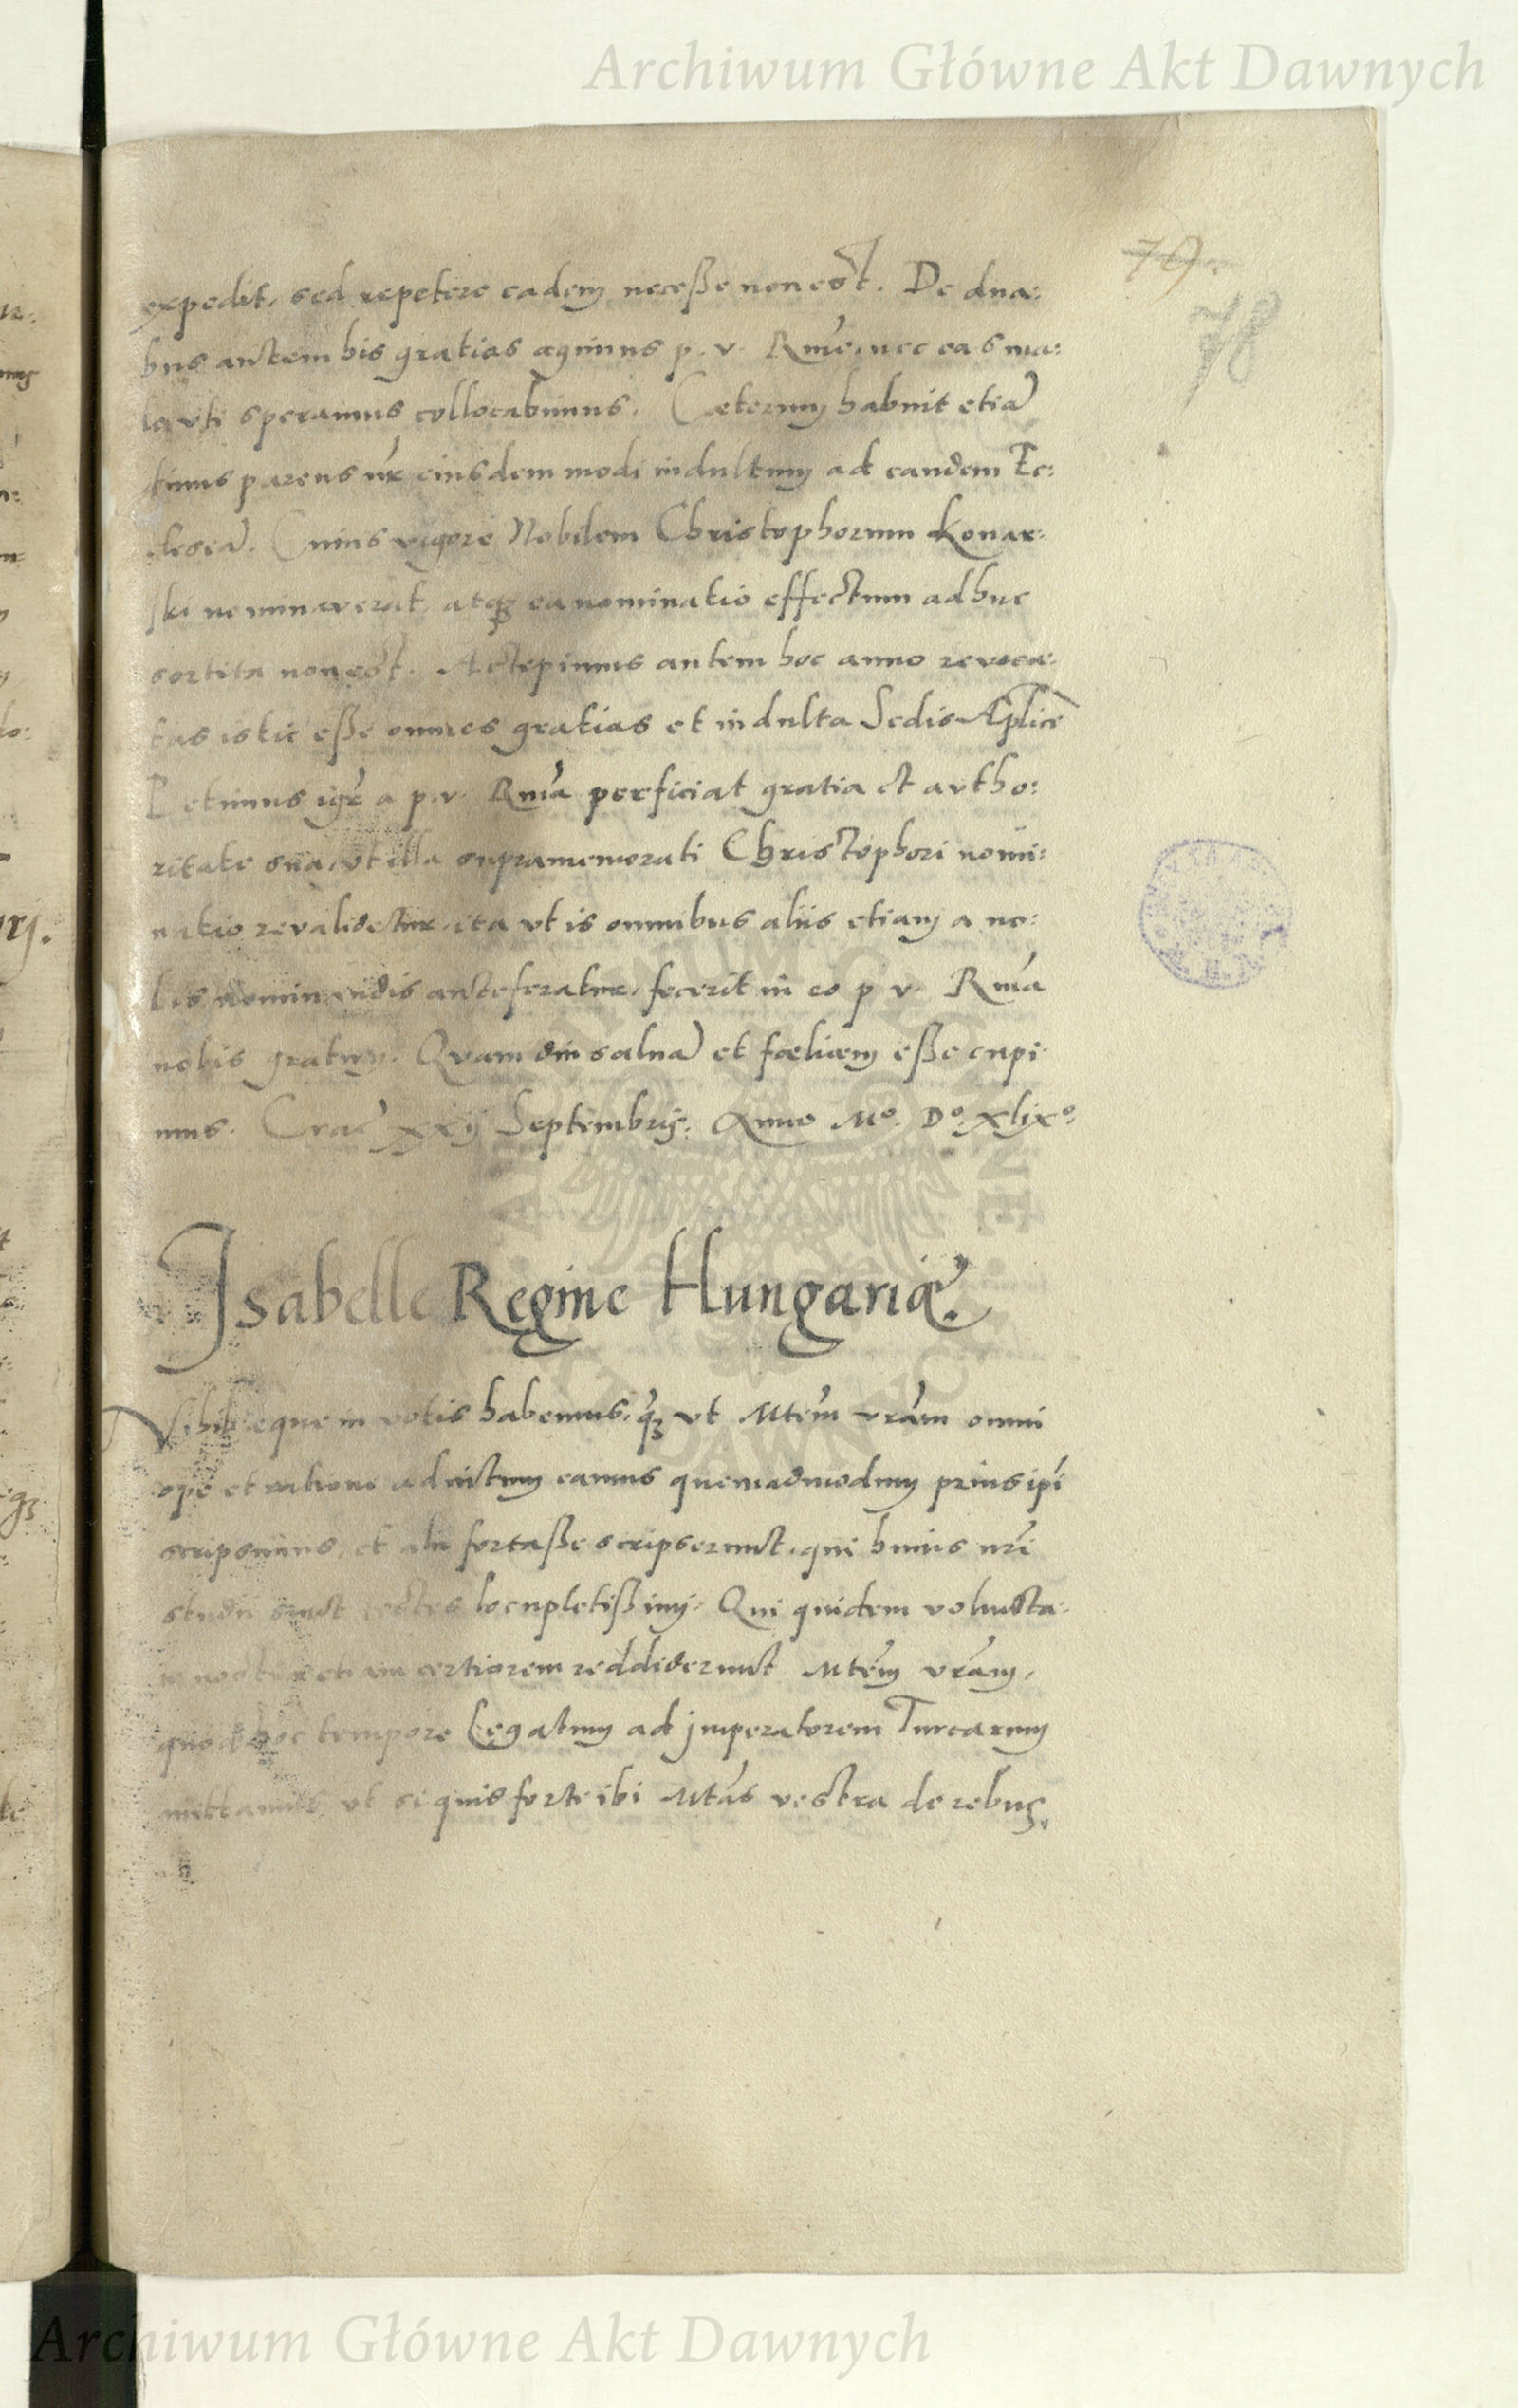 Archiwum Główne Akt Dawnych
79.
78
expedit, sed repetere eadem necesse non est. De dua:
bus autem his gratias agimus p. v. Rme, nec eas ma:
le vti speramus collocabimus. Cæterum habuit etiã
diuus parens nr̃ eiusdem modi indultum ad eandem Ec:
clesiã. Cuius vigore Nobilem Christophorum Konar:
ski nominaverat, atqȝ ea nominatio effectum adhuc
sortita non est. Accepimus autem hoc anno revoca:
tas istic esse omnes gratias et indulta Sedis Aplice
Petimus igr̃ a p. v. Rma perficiat gratia et avtho:
ritate sua, vt illa supramemorati Christophori nomi:
natio revalidetur, ita vt is omnibus aliis etiam a no:
bis nominandis anteferatur, fecerit in eo p. v. Rma
nobis gratum. Quam diu saluã et fœlicem esse cupi
mus. Crac̃ xxij Septembrij: Anno Mº. Dº. xlixº.
Isabelle Regine Hungariæ.
Nihil eque in votis habemus, qȝ vt Mtem vram omni
ope et ratione adiutum eamus quemadmodum prius ipi
scripsimus, et alii fortasse scripserunt, qui huius nri
studii sunt testes locupletissimi. Qui quidem volunta:
nostre etiam certiorem reddiderunt Mtem vram,
quod hoc tempore Legatum ad jmperatorem Turcarum
mittamus, vt si quid forte ibi Mtas vestra de rebus
Archiwum Główne Akt Dawnych